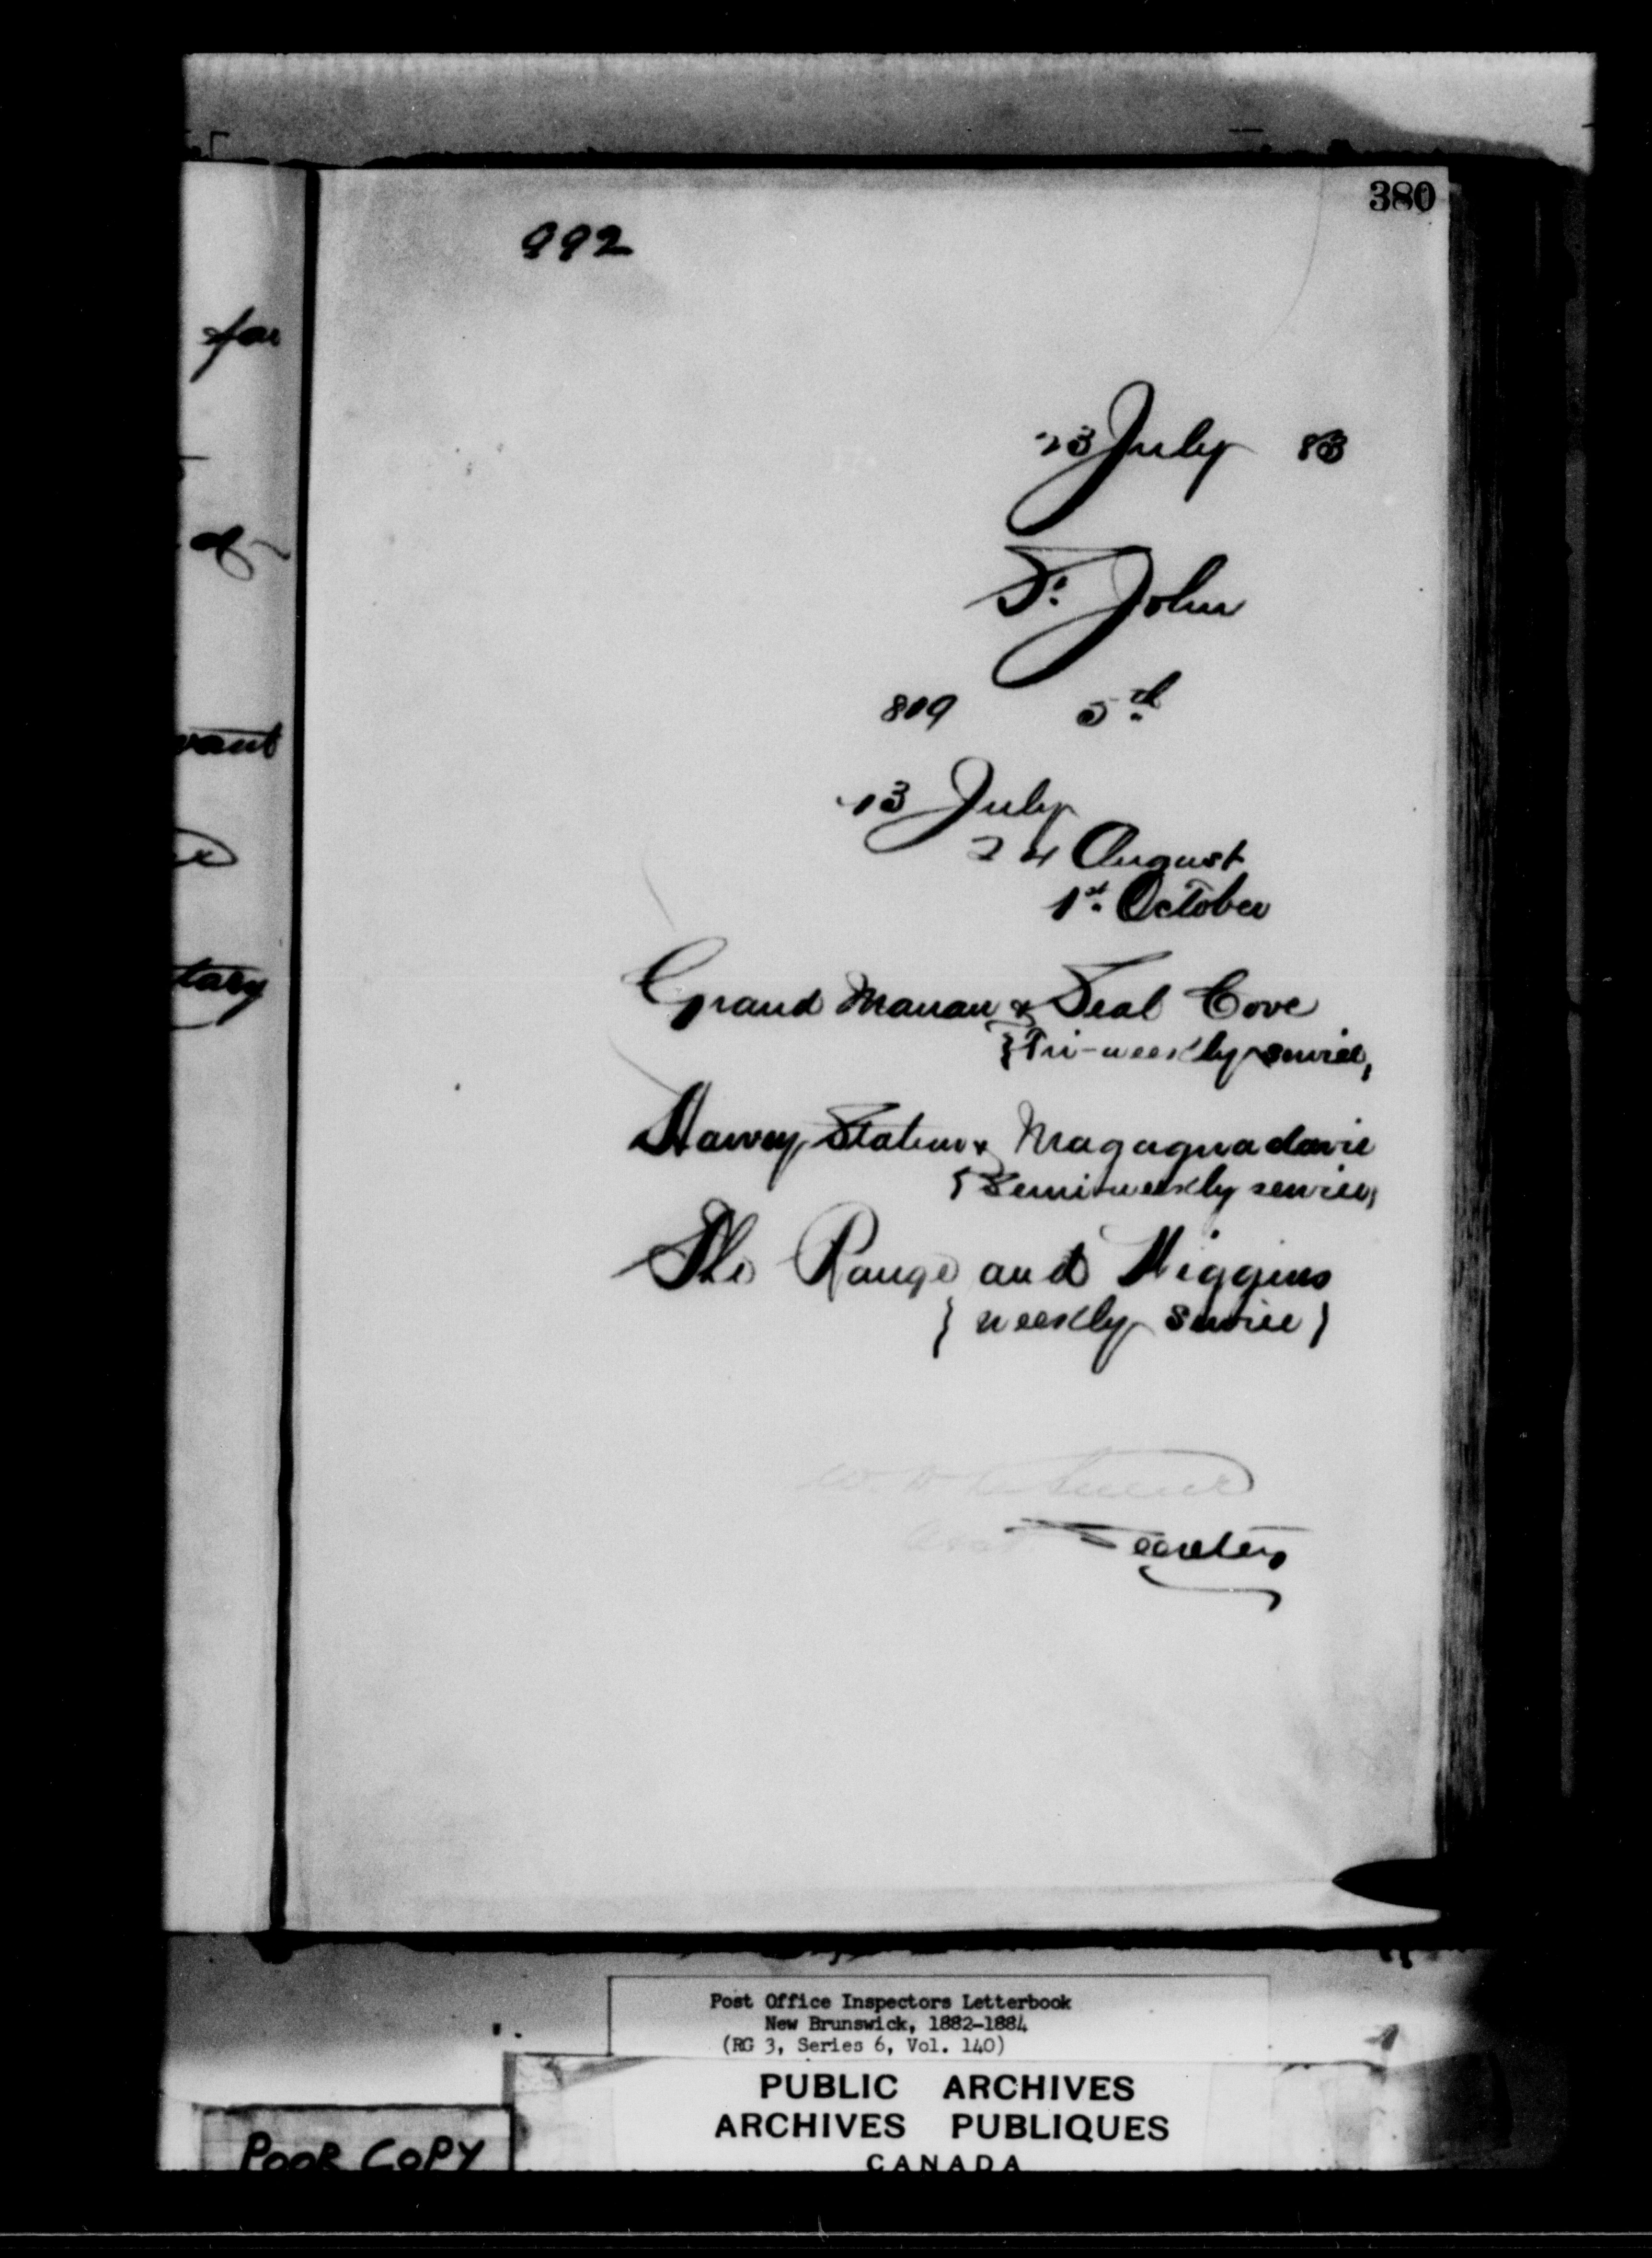 380
992
for
23 July 83
of
St. John
809 5th
vant
13 July
24 August
1st. October
tary
Grand Manan & Seal Cove
{Tri-weekly service,
Harvey Station & Magaguadavic
{Semi-weekly service,
The Range and Higgins
{weekly service}
Secretary
Post Office Inspectors Letterbook
New Brunswick, 1882-1884
(RG 3, Series 6, Vol. 140)
PUBLIC ARCHIVES
ARCHIVES PUBLIQUES
CANADA
POOR COPY